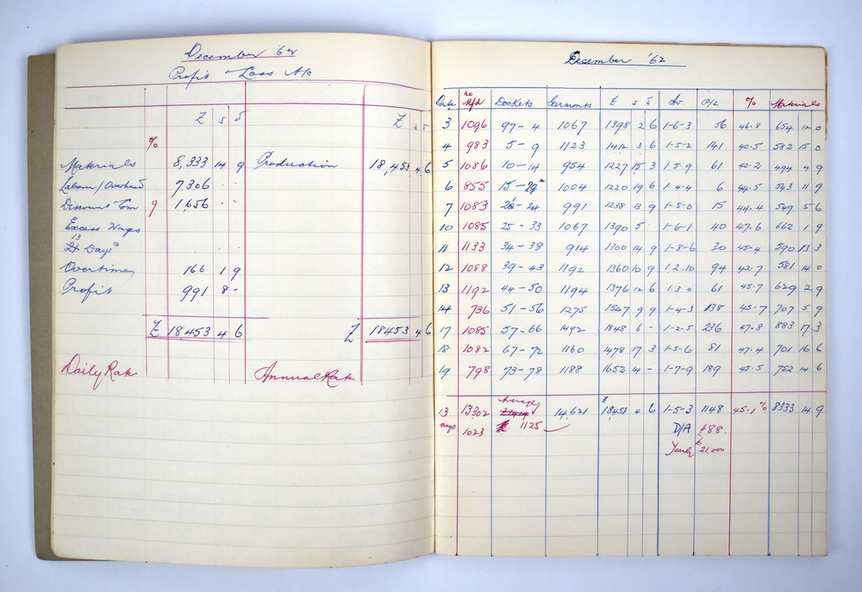 December '62
Profit & Loss A/c
£ s d £ s d
%
Materials 8,333 14 9 Production 18,453 4 6
Labour/Overhead 7306 . .
Discount Com 9 1,656 . .
Excess Wages
13
Overtime 166 1 9
Profit 991 8 -
£ 18,453 4 6 £ 18453 4 6
Daily Rate Annual Rate
December '62
Date no Mfd Dockets Garments £ s d Av P/L % Materials
3 1096 97-4 1067 1398 2 6 1-6-3 56 46.8 654 12 0
4 983 5-9 1123 1412 3 6 1-5-2 141 40.5 582 15 0
5 1086 10-14 954 1227 15 3 1.5.9 61 40.2 494 4 9
6 855 1004 1220 19 6 1-4-4 6 44.5 543 11 9
7 1083 991 1238 13 9 1-5-0 15 44.4 549 5 6
10 1085 25-33 1067 1390 5 - 1-6-1 40 47.6 662 1 9
11 1133 34-38 914 1300 14 9 1-8-6 30 45.4 590 13 3
12 1088 39-43 1192 1360 10 9 1.2.10 94 42.7 581 14 0
13 1192 44-50 1194 1376 12 6 1.3.0 61 45.7 629 2 9
14 736 51-56 1275 1547 9 9 1-4-3 138 45.7 707 5 9
17 1085 57-66 1492 1848 6 - 1-2-5 236 47.8 883 17 3
18 1082 67-72 1160 1478 17 3 1-5-6 81 47.4 701 16 6
19 798 73-78 1188 1652 4 - 1-7-9 189 45.5 752 14 6
Average £
13 13302 14,621 18453 4 6 1-5-3 1148 45.1% 8333 14 9
days 1023 1125 D/A £88
Yearly £21000